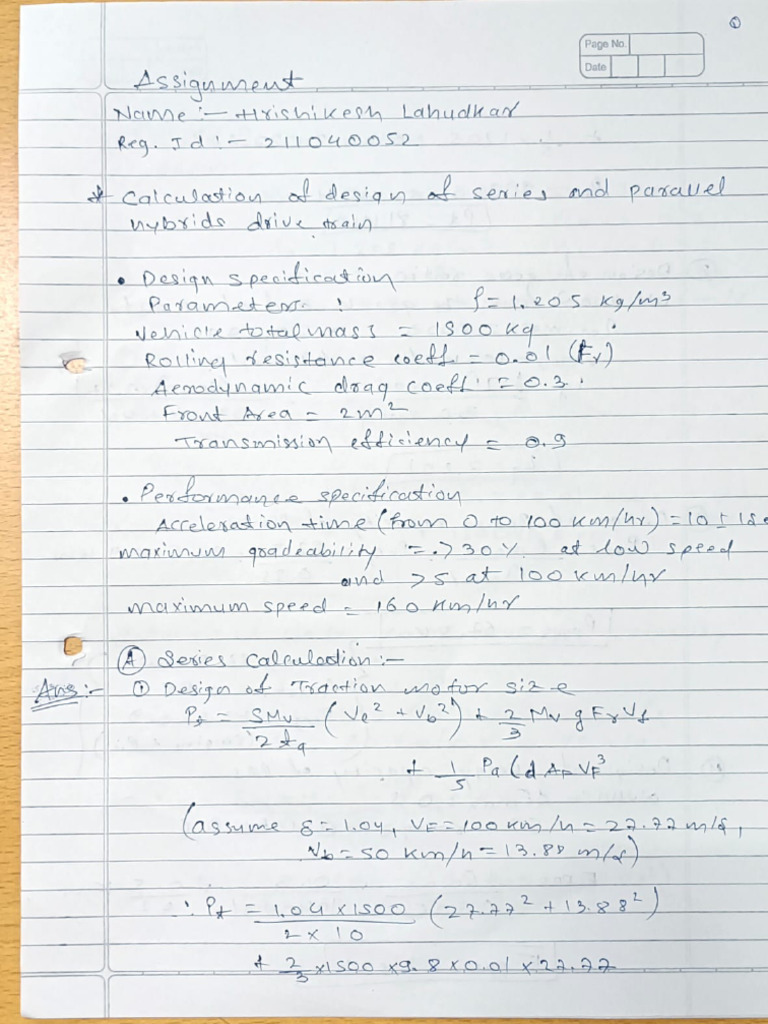 ①
Page No.
Date
Assignment
Name :- Hrishikesh Lahudkar
Reg. Id :- 211040052
* Calculation of design of series and parallel
hybrids drive train
• Design specification
Parameters : ρ = 1.205 kg/m³
Vehicle total mass = 1500 kg
Rolling resistance coeff. = 0.01 (Fr)
Aerodynamic drag coeff. = 0.3.
Front Area = 2m²
Transmission efficiency = 0.9
• Performance specification
Acceleration time (from 0 to 100 km/hr) = 10 ± 1se
maximum gradeability = > 30%. at low speed
and >5 at 100 km/hr
maximum speed = 160 km/hr
Ⓐ Series Calculation :-
Ans :- ① Design of Traction motor size
Pt = SMv / 2ta (Ve² + Vb²) + 2/3 Mv g Fr Vf
+ 1/5 Pa Cd AF VF³
(assume δ = 1.04, VF = 100 km/h = 27.77 m/s,
Vb = 50 km/h = 13.88 m/s)
∴ Pt = 1.04 × 1500 / 2 × 10 (27.77² + 13.88²)
+ 2/3 × 1500 × 9.8 × 0.01 × 27.77